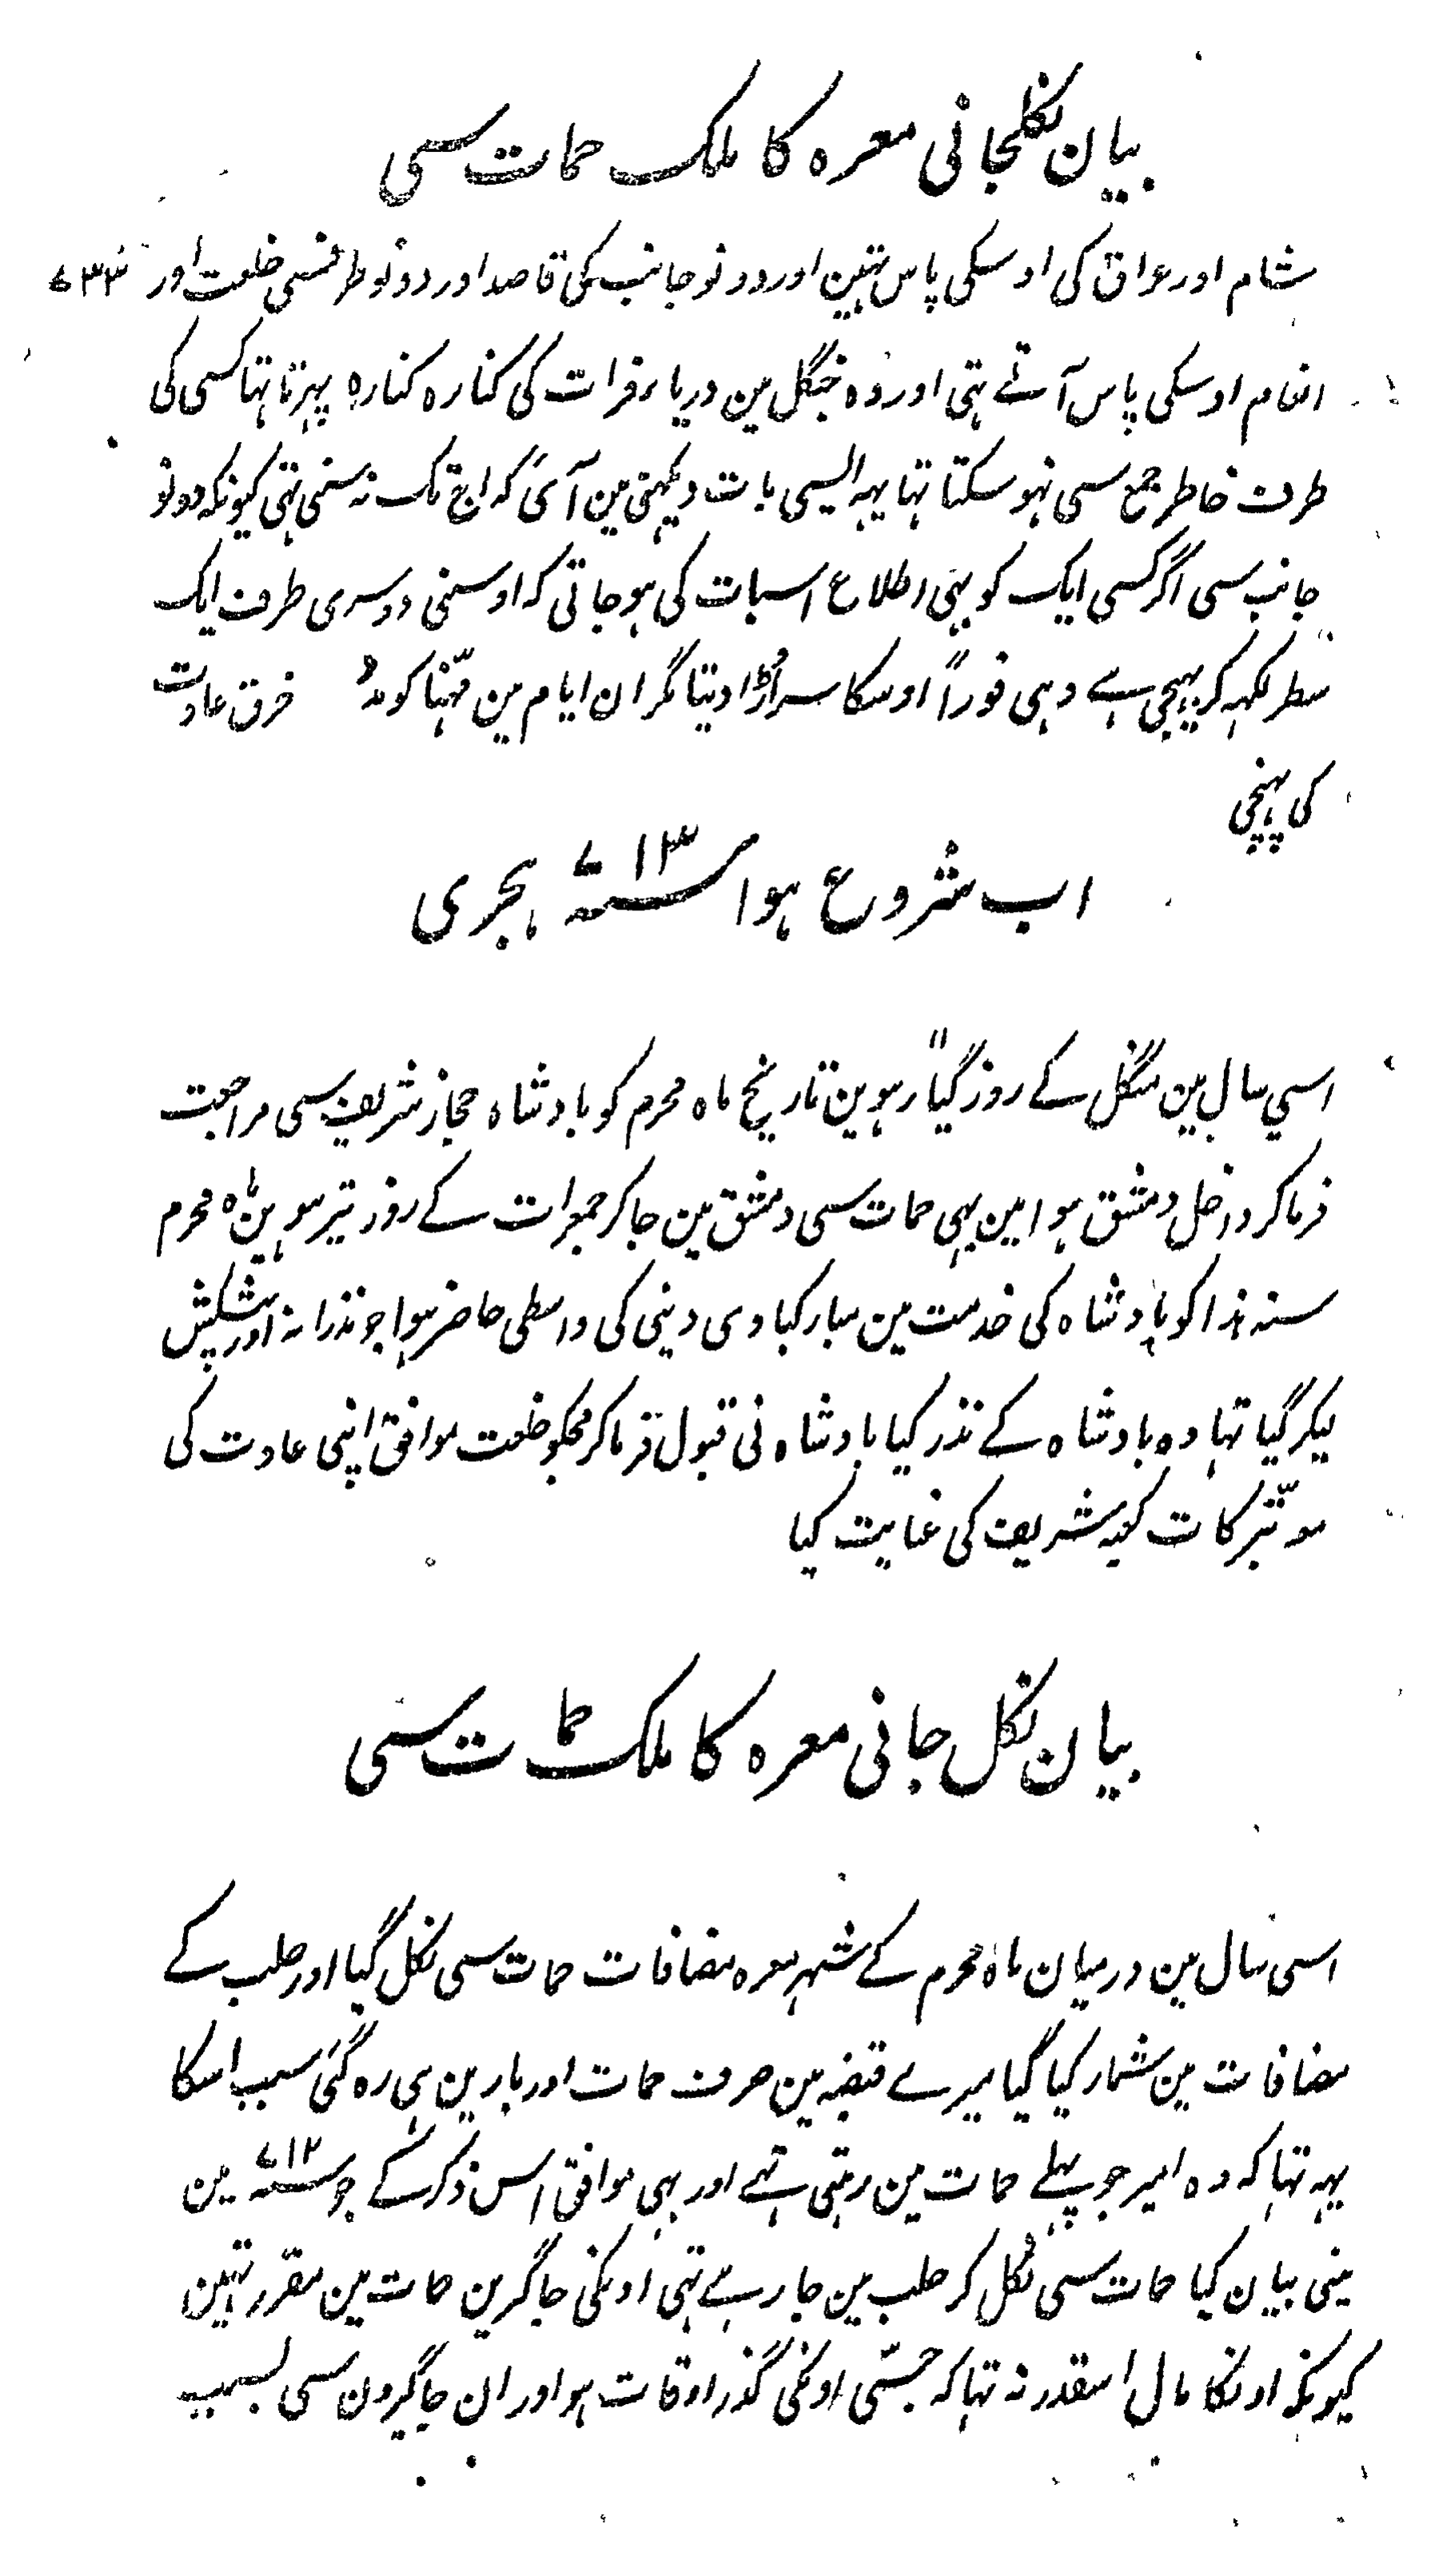 بیان نکلجانی معرہ کا ملک حمات سی
شام اور عراق کی اوسکی پاس تہین اور دونو جانب کی قاصد اور دونو طرفسی خلعت اور ۷۳۳
انعام اوسکی پاس آتے تہی اور وہ جنگل مین دریا ر فرات کی کنارہ کنارہ پہرتا تہا کسی کی
طرف خاطر جمع سی نہو سکتا تہا یہہ ایسی بات دیکہنی مین آئی کہ اج تک نہ سنی تہی کیونکہ دونو
جانب سی اگر کسی ایک کو بہی اطلاع اسبات کی ہو جاتی کہ اوسنی دوسری طرف ایک
سطر لکہہ کر بہیجی ہے وہی فوراً اوسکا سر اُڑا دیتا مگر ان ایام مین مہنّا کو مدد خرق عادت
کی پہنچی
اب شروع ہوا سنہ ۷۱۳ ہجری
اسی سال مین منگل کے روز گیارہوین تاریخ ماہ محرم کو بادشاہ حجاز شریف سی مراجعت
فرماکر داخل دمشق ہوا مین بہی حمات سی دمشق مین جاکر جمعرات کے روز تیرہوین ماہ محرم
سنہ ہذا کو بادشاہ کی خدمت مین مبارکبادی دینی کی واسطی حاضر ہوا جو نذرانہ اور پیشکش
لیکر گیا تہا وہ بادشاہ کے نذر کیا بادشاہ نی قبول فرماکر مجکو خلعت موافق اپنی عادت کی
معہ تبّرکات کعبہ شریف کی عنایت کیا
بیان نکل جانی معرہ کا ملک حمات سی
اسی سال مین درمیان ماہ محرم کے شہر معرہ مضافات حمات سی نکل گیا اور حلب کے
مضافات مین شمار کیا گیا میرے قبضہ مین صرف حمات اور بارین ہی رہ گئی سبب اسکا
یہہ تہا کہ وہ امیر جو پہلے حمات مین رہتی تہے اور بہی موافق اس ذکر کے جو سنہ ۷۱۲ مین
مینی بیان کیا حمات سی نکل کر حلب مین جا رہے تہی اونکی جاگرین حمات مین مقرر تہین
کیونکہ اونکا مال اسقدر نہ تہا کہ جسّی اونکی گذر اوقات ہو اور ان جاگیرون سی بسبب